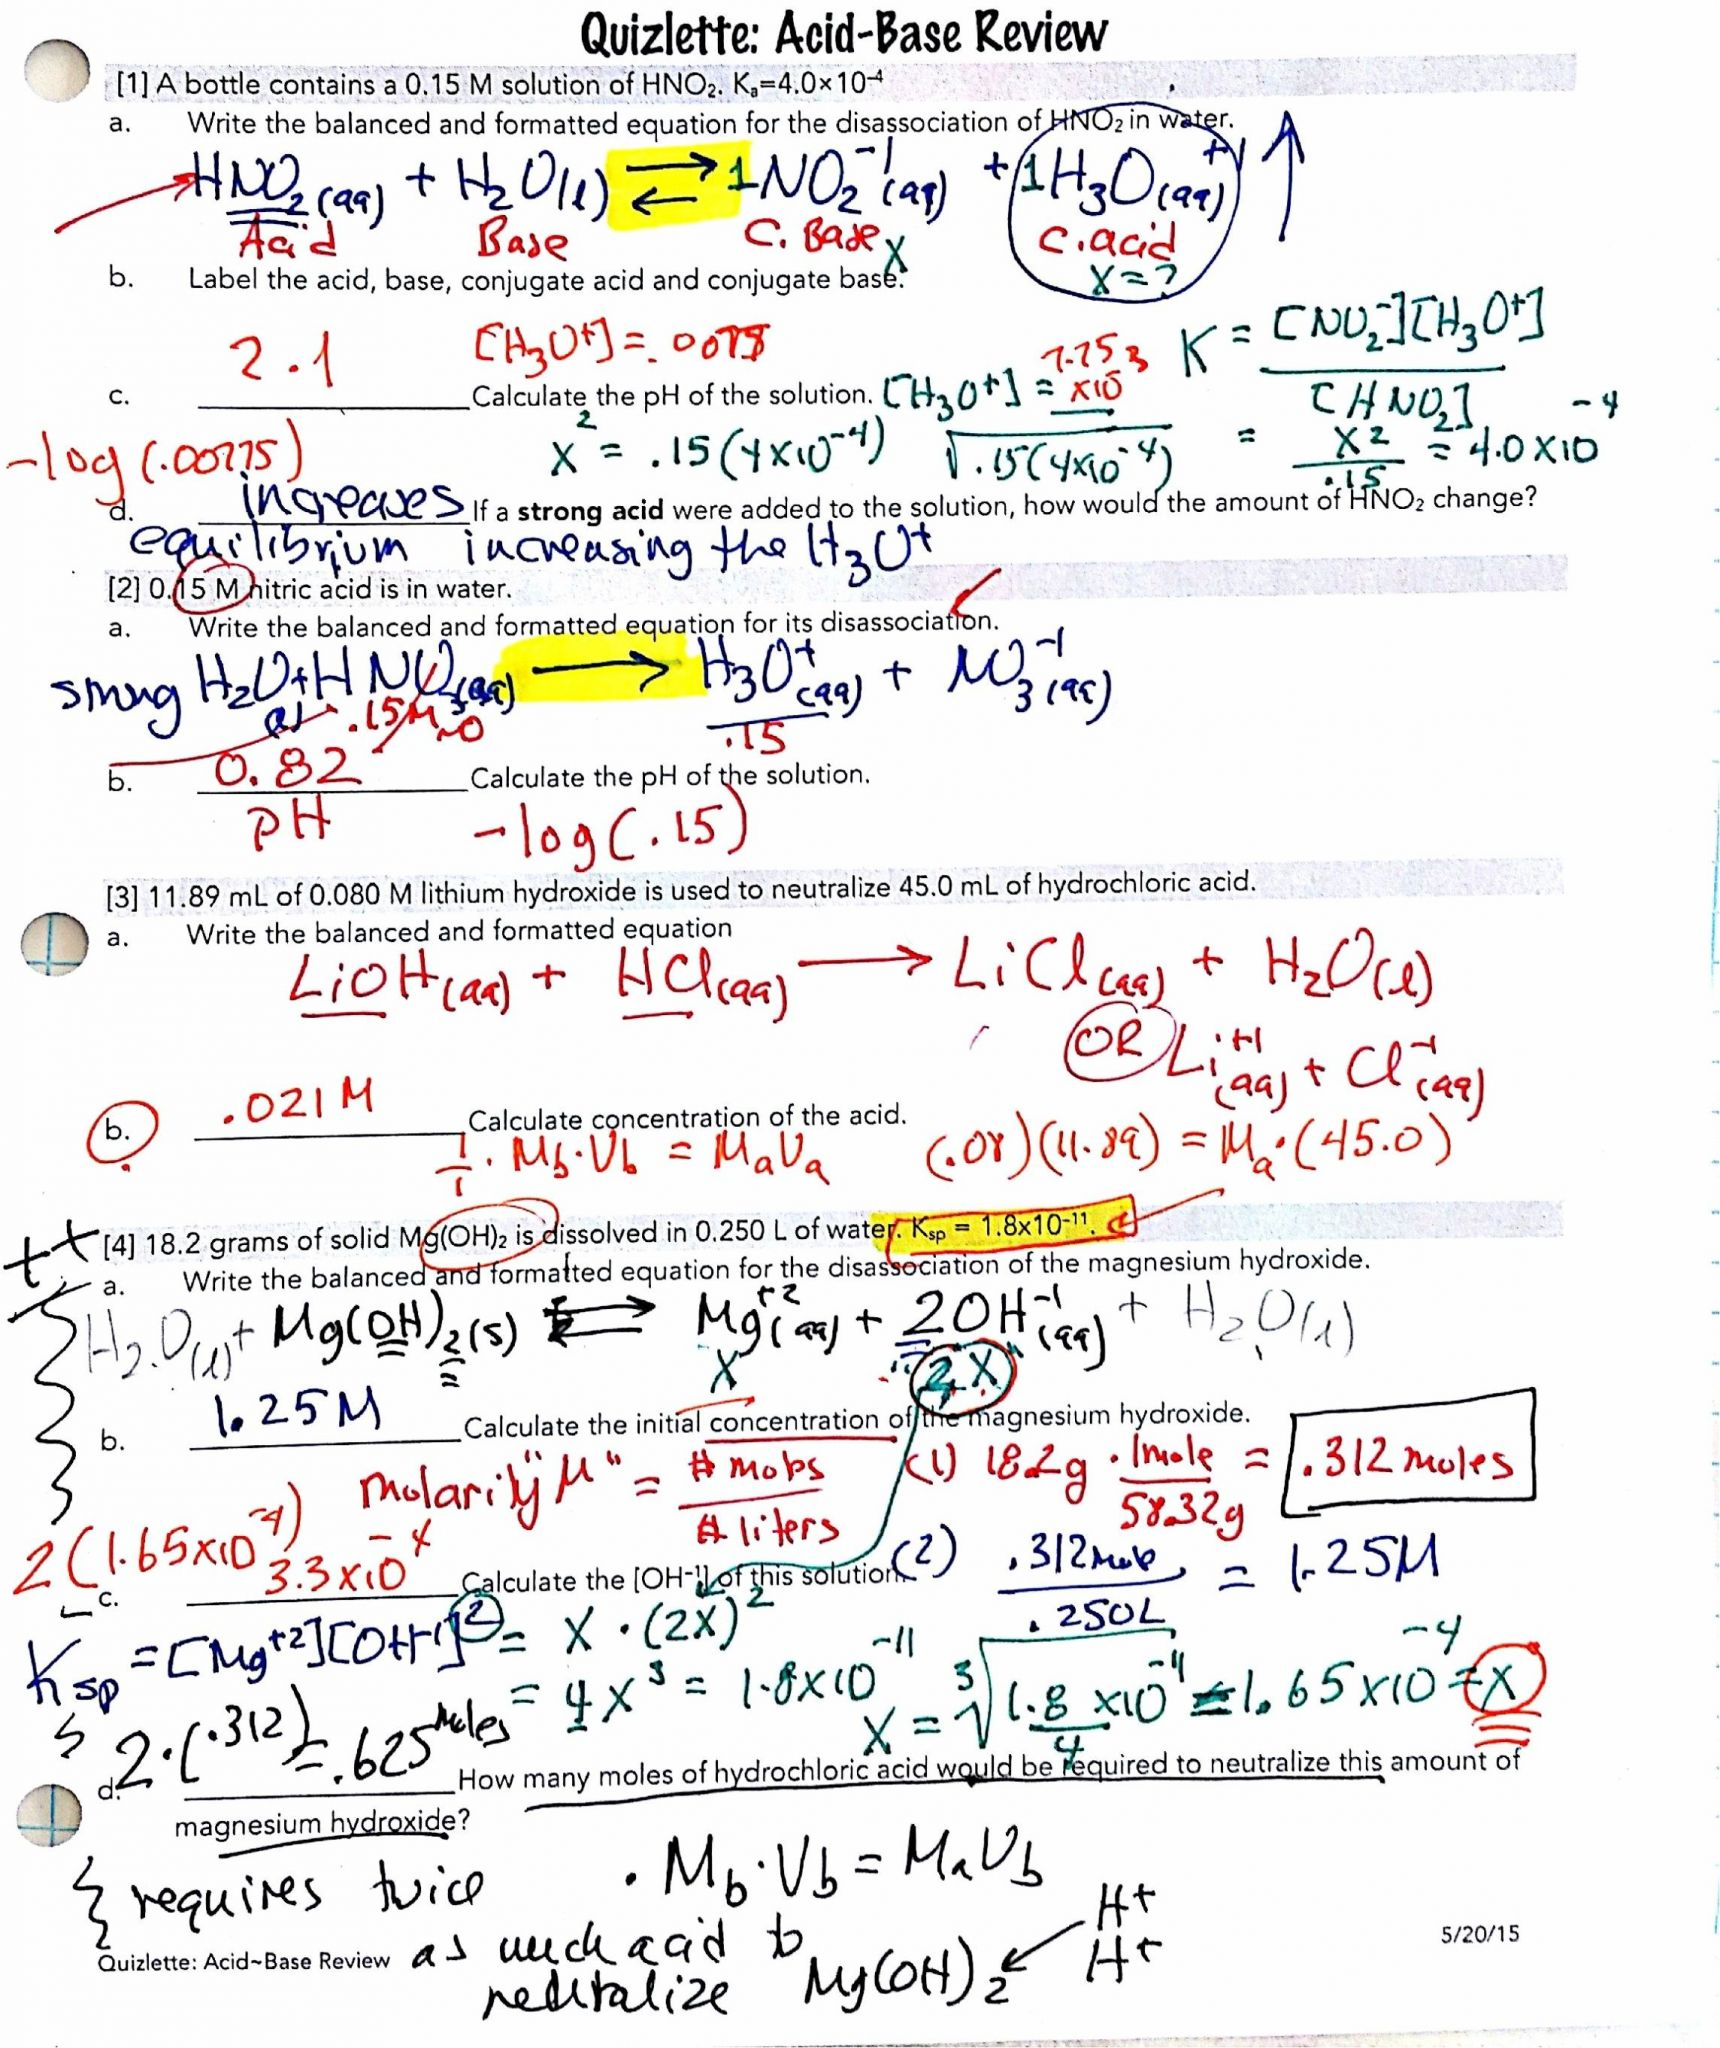 Quizlette: Acid-Base Review
[1] A bottle contains a 0.15 M solution of HNO₂. Kₐ=4.0×10⁻⁴
a. Write the balanced and formatted equation for the disassociation of HNO₂ in water.
HNO₂(aq) + H₂O(l) ⇄ 1NO₂⁻¹(aq) + 1H₃O⁺¹(aq) ↑
Acid Base C. Base C. acid
X X = ?
b. Label the acid, base, conjugate acid and conjugate base.
2.1 [H₃O+] = .00775 K = [NO₂⁻][H₃O+] / [HNO₂]
c. Calculate the pH of the solution. [H₃O+] = 7.75 x10⁻³
-log(.00775) X² = .15(4x10⁻⁴) √.15(4x10⁻⁴) = X²/.15 = 4.0x10⁻⁴
d. increases If a strong acid were added to the solution, how would the amount of HNO₂ change?
equilibrium increasing the H₃O+
[2] 0.15 M nitric acid is in water.
a. Write the balanced and formatted equation for its disassociation.
strong H₂O + HNO₃(aq) → H₃O⁺(aq) + NO₃⁻¹(aq)
(l) .15M → 0 .15
b. 0.82 Calculate the pH of the solution.
pH -log(.15)
[3] 11.89 mL of 0.080 M lithium hydroxide is used to neutralize 45.0 mL of hydrochloric acid.
a. Write the balanced and formatted equation
LiOH(aq) + HCl(aq) → LiCl(aq) + H₂O(l)
OR Li⁺¹(aq) + Cl⁻¹(aq)
b. .021M Calculate concentration of the acid.
1/1 · Mb·Vb = MaVa (.08)(11.89) = Ma·(45.0)
++ [4] 18.2 grams of solid Mg(OH)₂ is dissolved in 0.250 L of water. Ksp = 1.8x10⁻¹¹.
a. Write the balanced and formatted equation for the disassociation of the magnesium hydroxide.
H₂O(l) + Mg(OH)₂(s) ⇄ Mg⁺²(aq) + 2OH⁻¹(aq) + H₂O(l)
X 2X
b. 1.25M Calculate the initial concentration of the magnesium hydroxide.
molarity "M" = # moles / # liters (1) 18.2g · 1mole / 58.32g = .312 moles
2(1.65x10⁻⁴)
c. 3.3x10⁻⁴ Calculate the [OH-¹] of this solution. (2) .312 mole / .250L = 1.25M
Ksp = [Mg⁺²][OH⁻¹]² = X · (2X)²
= 4X³ = 1.8x10⁻¹¹ X = ³√1.8x10⁻¹¹/4 = 1.65x10⁻⁴ = X
d. 2·(.312) = .625 moles How many moles of hydrochloric acid would be required to neutralize this amount of
magnesium hydroxide?
requires twice · Mb·Vb = MaVb
as much acid to H+
neutralize Mg(OH)₂ H+
Quizlette: Acid~Base Review 5/20/15